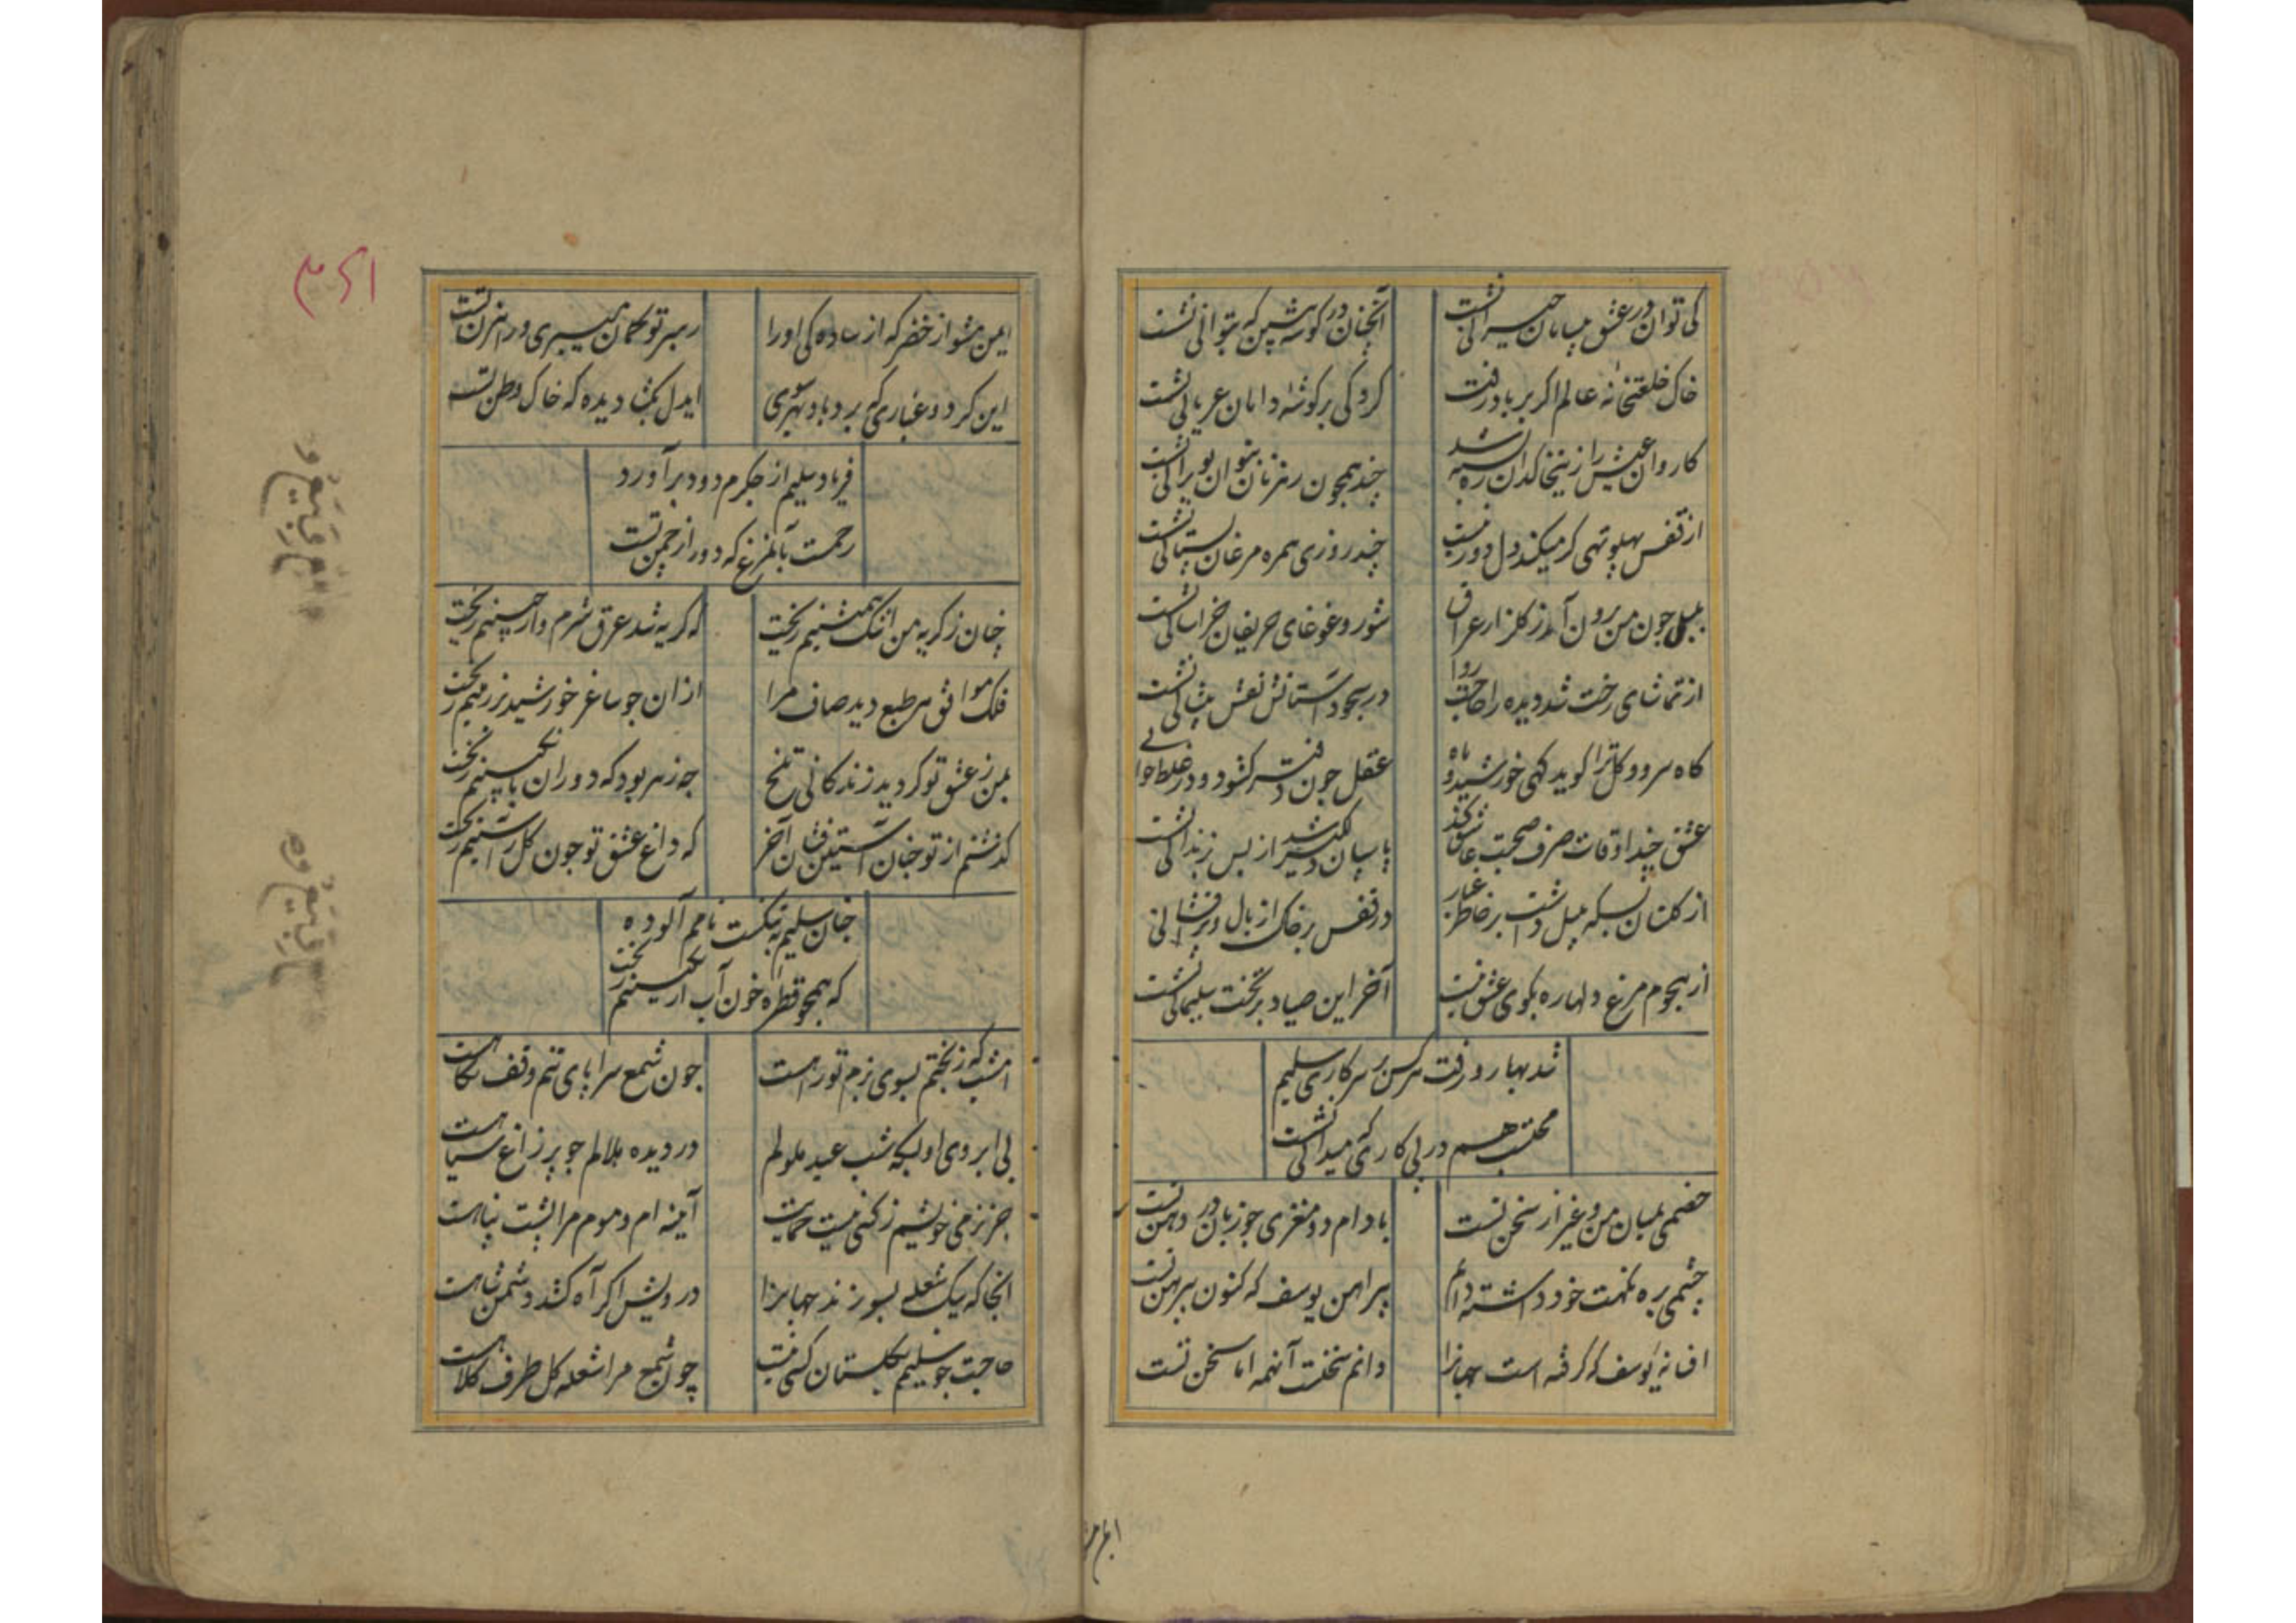 کی توان در عشق بیابان حیرانی نشست
آنچنان در کوشه بنشین که بتوانی نشست
خاک خلقتخانه عالم اکر بر باد رفت
کرد کی بر کوشه دامان عریانی نشست
کاروان عیش را زین خاکدان شد
چند همچون رهزنان بتوان بویرانی نشست
از قفس پهلو تهی کر میکند دل دور نیست
چند روزی همره مرغان بستانی نشست
بلبل چون من برون آمد ز کلزار عراق
شور و غوغای حریفان خراسانی نشست
از تماشای رخت شد دیده را حاجت روا
در سجود آستانش نقش پیشانی نشست
کاه سرو و کل ترا کوید کهی خورشید و ماه
عقل چون دفتر کشود و در غلط خوانی
عشق چند اوقات صرف صحبت عاشق کند
پاسبان دلکیر شد از بس زندانی نشست
از کلستان بسکه بلبل داشت بر خاطر غبار
در قفس بر خاک از بال و پر افشانی
از هجوم مرغ دلها ره بکوی عشق نیست
آخر این صیاد بر تخت سلیمانی نشست
شد بهار و رفت هر کس بر سر کاری سلیم
محتسب هم در پی کاری که میدانی نشست
خصمی بمیان من و غیر از سخن نیست
بادام دو مغزی چو زبان در دهن نیست
چشمی بره نکهت خود داشته دایم
پیراهن یوسف که کنون پیرهن نیست
افسانه یوسف که کرفته است جهانرا
دانم سخنست آنهمه اما سخن نیست
ایمن مشو از خضر که از ساده کی او را
رهبر تو کمان میبری و راهزن نیست
این کرد و غباری که برد باد بهر سوی
ایدل بکشا دیده که خاک وطن نیست
فریاد سلیم از جکرم دود برآورد
رحمت بآنمرغ که دور از چمن نیست
چنان ز کریه من اشک همنشینم ریخت
که کریه شد عرق شرم و از جبینم ریخت
فلک موافق هر طبع دید صاف مرا
از ان چو ساغر خورشید بر زمینم ریخت
بمن ز عشق تو کردید زندکانی تلخ
چه زهر بود که دوران بانکبینم ریخت
کذشتم از تو چنان آستین فشان آخر
که داغ عشق تو چون کل ز آستینم ریخت
چنان سلیم به شکست نامم آلوده
که همچو قطره خون آب از نکینم ریخت
امشب که ز بختم بسوی بزم تو راهست
چون شمع سراپای تنم وقف نکاهست
بی ابروی او بسکه شب عید ملولم
در دیده هلالم چو پر زاغ سیاهست
جز نرمی خویشم ز کسی نیست حمایت
آینه ام و موم مرا پشت پناهست
آنجا که بیک شعله بسوزند جهانرا
درویش اکر آه کشد دشمن شاهست
حاجت چو سلیم بکلستان کسی نیست
چون شمع مرا شعله کل طرف کلاهست